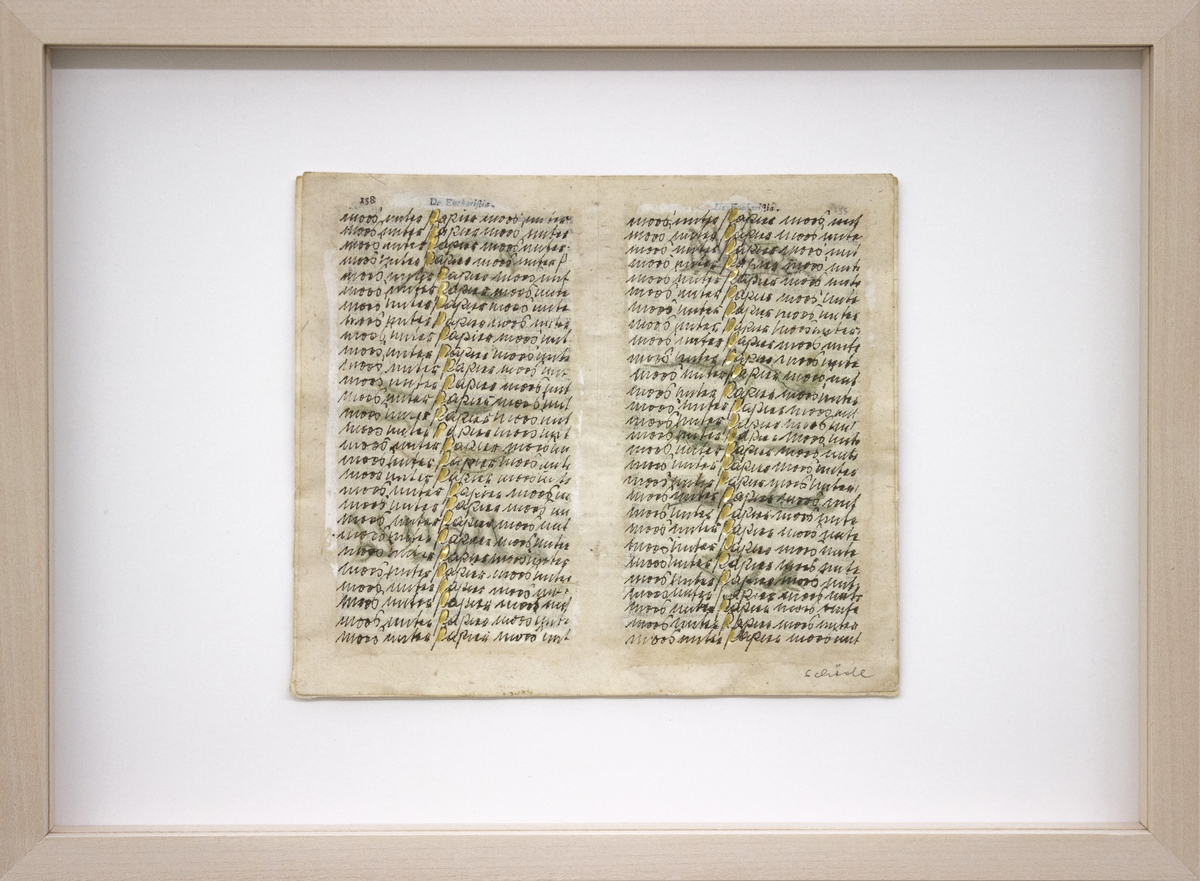 158
De Euchariſtia.
moos unter papier moos unter
moos unter papier moos unter
moos unter papier moos unter
moos unter papier moos unter p
moos unter papier moos unt
moos unter papier moos unte
moos unter papier moos unte
moos unter papier moos unter
moos unter papier moos unt
moos unter papier moos unte
moos unter papier moos unt
moos unter papier moos unt
moos unter papier moos unt
moos unter papier moos unt
moos unter papier moos unt
moos unter papier moos un
moos unter papier moos un
moos unter papier moos unte
moos unter papier moos un
moos unter papier moos un
moos unter papier moos unt
moos unter papier moos unte
moos unter papier moos unter
moos unter papier moos unte
moos unter papier moos unter
moos unter papier moos unt
moos unter papier moos unte
moos unter papier moos unt
De Euchariſtia.
moos unter papier moos unt
moos unter papier moos unte
moos unter papier moos unt
moos unter papier moos unt
moos unter papier moos unte
moos unter papier moos unte
moos unter papier moos unter
moos unter papier moos unter
moos unter papier moos unte
moos unter papier moos unte
moos unter papier moos unt
moos unter papier moos unter
moos unter papier moos unt
moos unter papier moos unt
moos unter papier moos unte
moos unter papier moos unte
moos unter papier moos unter
moos unter papier moos unter
moos unter papier moos unt
moos unter papier moos unte
moos unter papier moos unte
moos unter papier moos unte
moos unter papier moos unte
moos unter papier moos unte
moos unter papier moos unter
moos unter papier moos unte
moos unter papier moos unte
moos unter papier moos unt